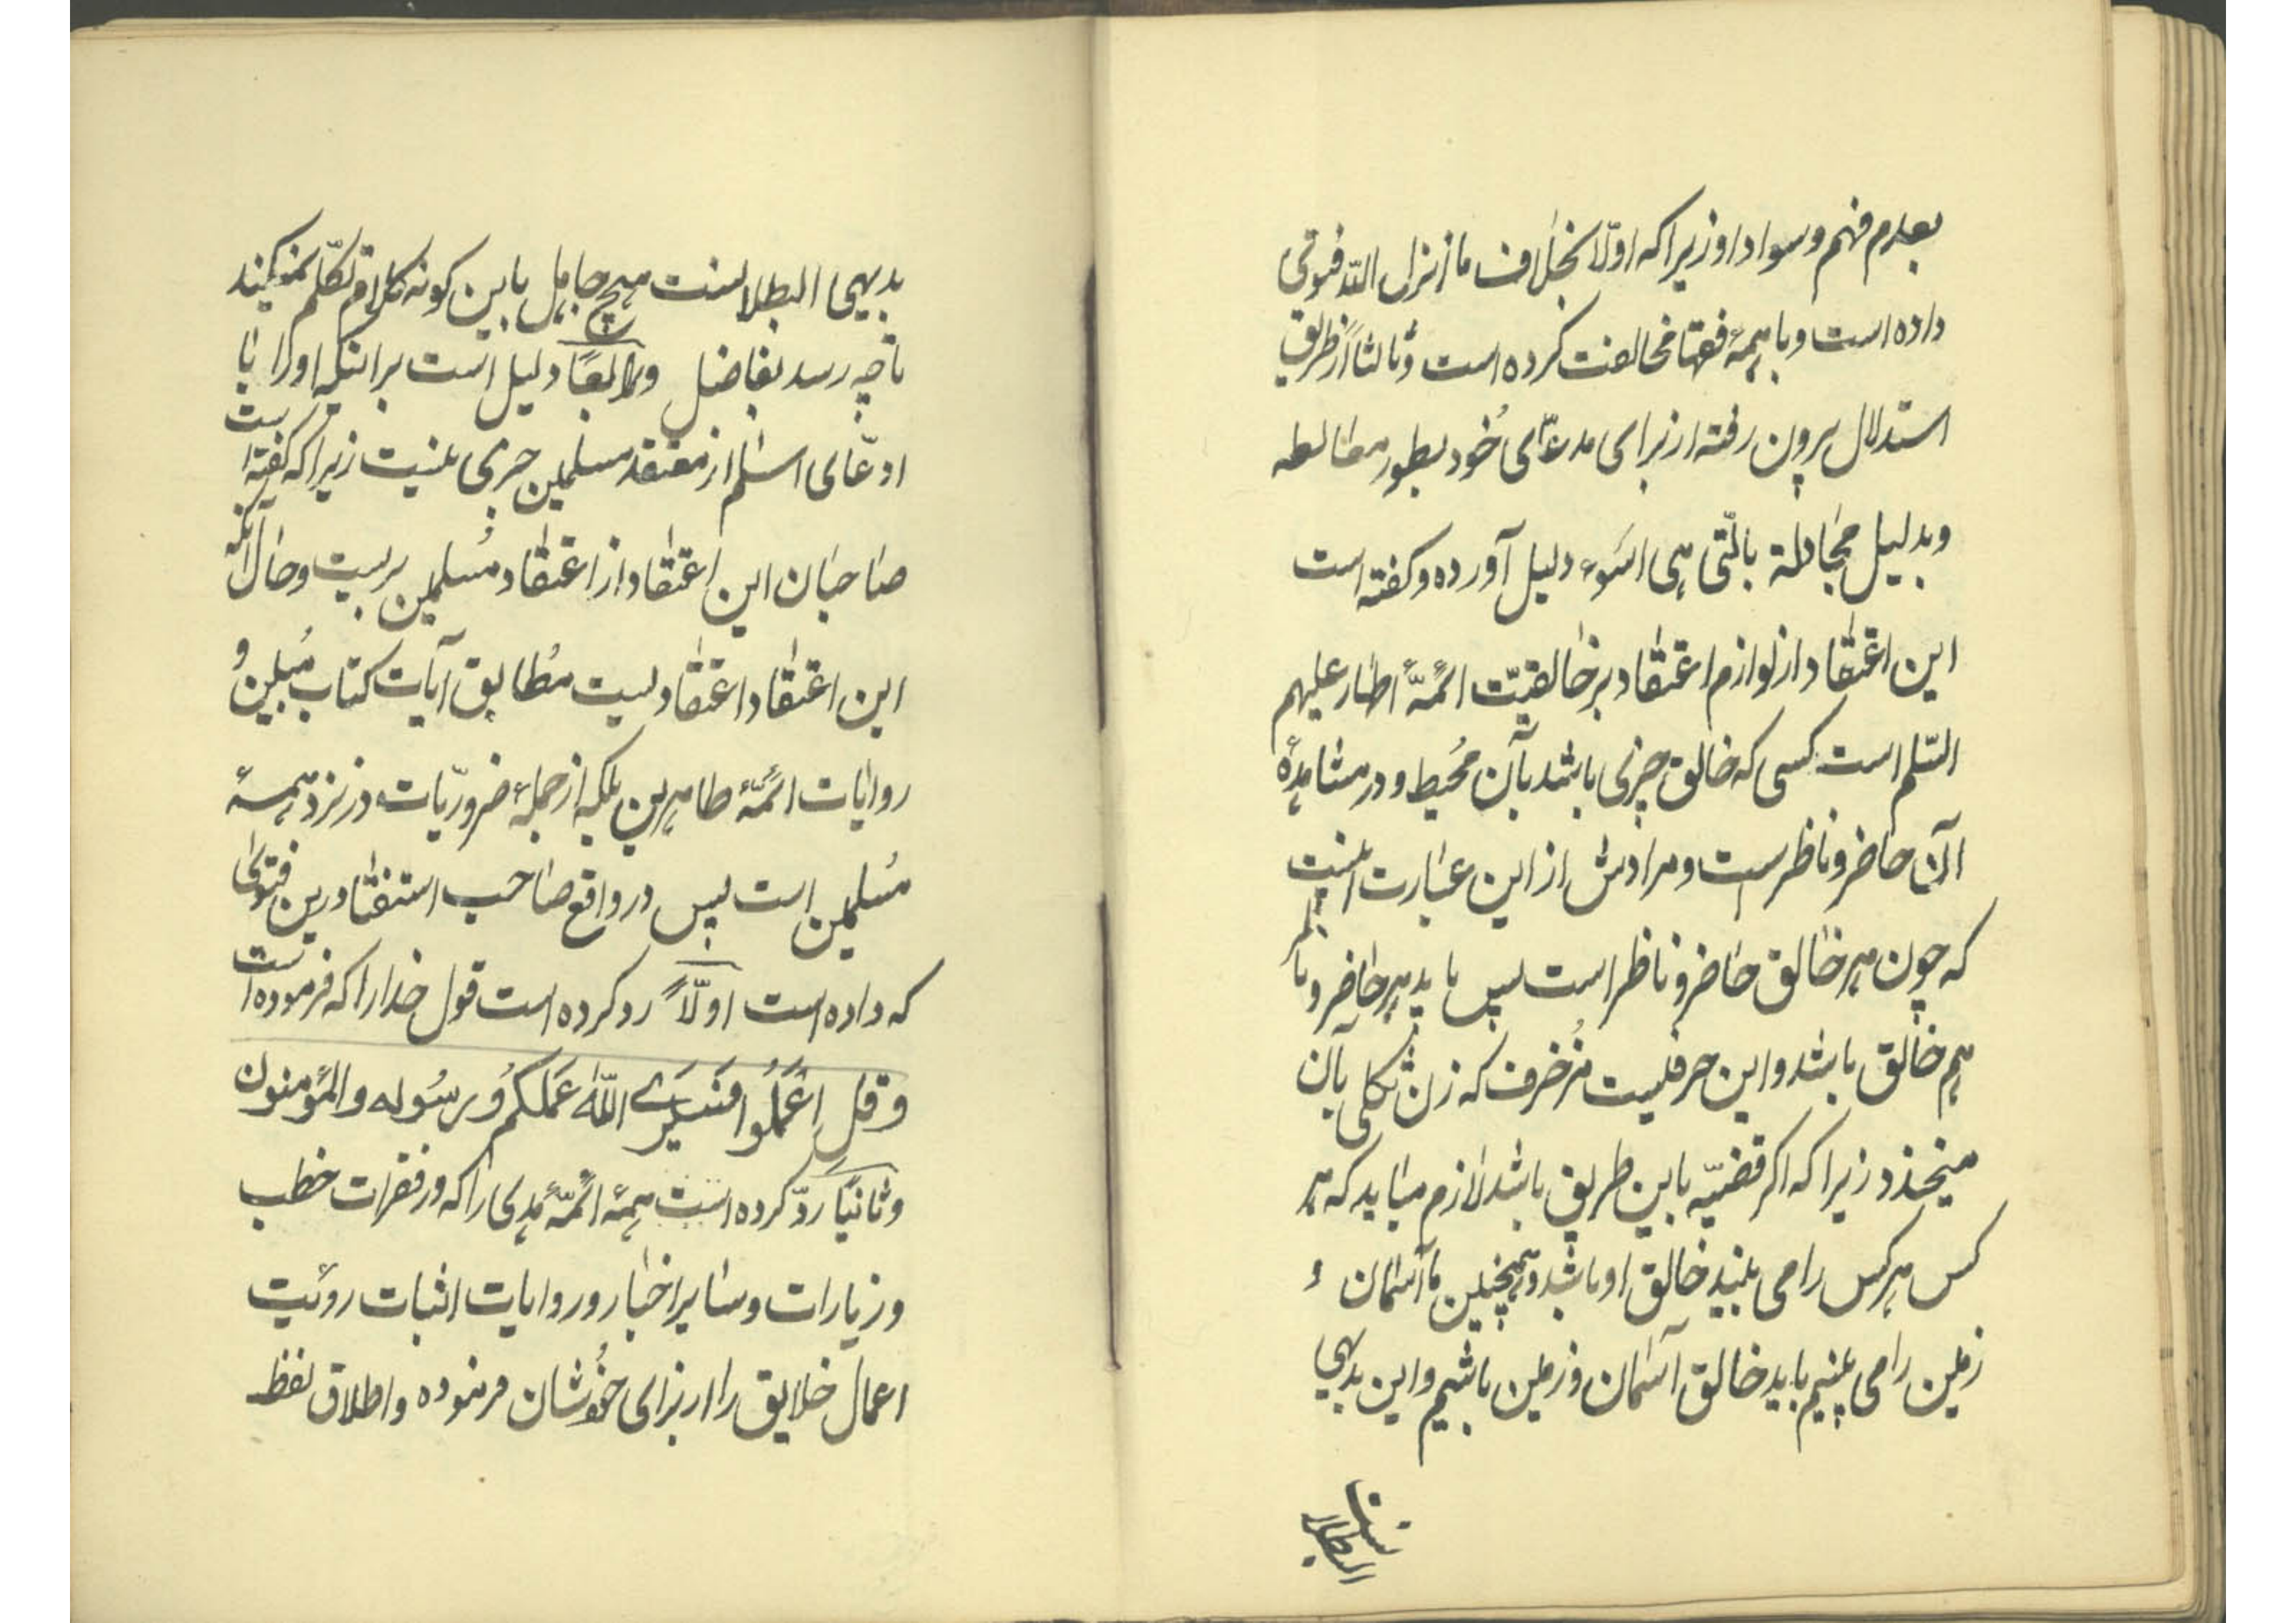 بعدم فهم و سواد او زیرا که اوّلاً بخلاف ما انزل اللّه فتوی
داده است و با همهٔ فقها مخالفت کرده است و ثالثاً از طریق
استدلال بیرون رفته از برای مدعّای خُود بطور مغالطه
و بدلیل مجادلة بالّتی هی اسَوء دلیل آورده و کفته است
این اعتقاد از لوازم اعتقاد بر خالقیّت ائمّهٔ اطهار علیهم
السّلم است کسی که خالق چیزی باشد بآن مُحیط و در مشاهدهٔ
آن حاضر و ناظر است و مرادش از این عبارت اینست
که چون هر خالق حاضر و ناظر است پس باید هر حاضر و ناظر
هم خالق باشد و این حرفیست مُزخرف که زن ثکلی بآن
میخندد زیرا که اکر قضیّه باین طریق باشد لازم میاید که هر
کس هر کس را می بیند خالق او باشد و همچنین ما آسمان و
زمین را می بینیم باید خالق آسمان و زمین باشیم و این بدیهی
البطلانست
بدیهی البطلانست هیچ جاهل باین کونه کلام تکلّم نمیکند
تا چه رسد بفاضل و رابعاً دلیل است بر اینکه او را با
ادعّای اسلم از معتقد مسلمین خبری نیست زیرا که کفته است
صاحبان این اعتقاد از اعتقاد مُسلمین بریست و حال آنکه
این اعتقاد اعتقادیست مُطابق آیات کتاب مُبین و
روایات ائمّهٔ طاهرین بلکه از جملهٔ ضروریّات در نزد همهٔ
مُسلمین است پس در واقع صاحب استفتا درین فتوی
که داده است اولّاً رد کرده است قول خدا را که فرموده است
وَ قُلِ اِعْمَلُوا فَسَیَرَی اللّه عَمَلکُم وَ رسُوله و المؤمنون
و ثانیاً ردّ کرده است همهٔ ائمّهٔ هدی را که در فقرات خطب
و زیارات و سایر اخبار و روایات اثبات روئیت
اعمال خلایق را از برای خُودشان فرموده و اطلاق لفظ